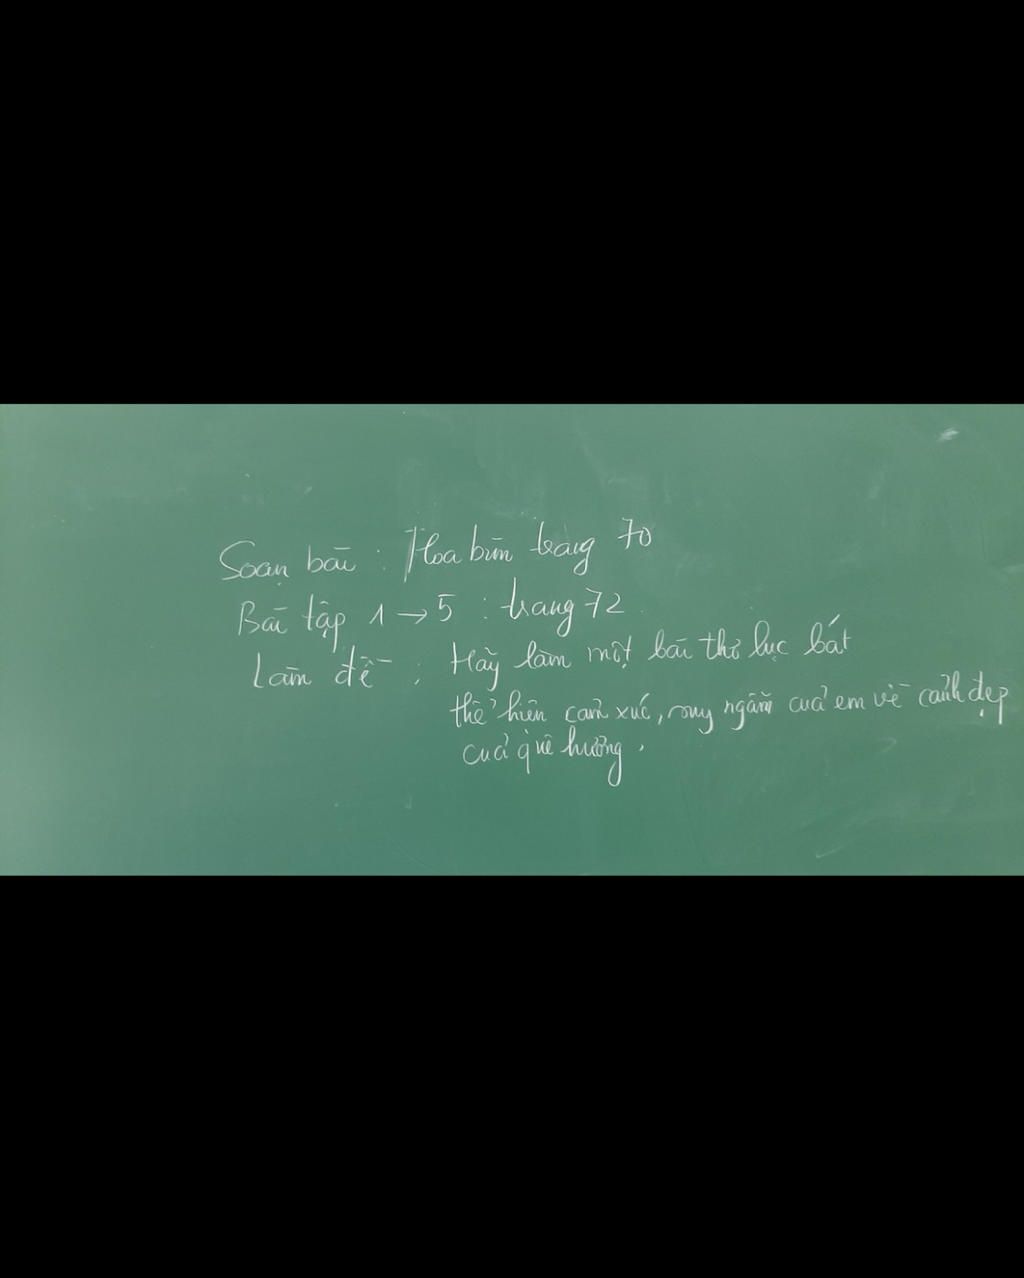 Soạn bài : Hoa bìm trang 70
Bài tập 1 → 5 : trang 72
Làm đề : Hãy làm một bài thơ lục bát
thể hiện cảm xúc, suy ngẫm của em về cảnh đẹp
của quê hương.